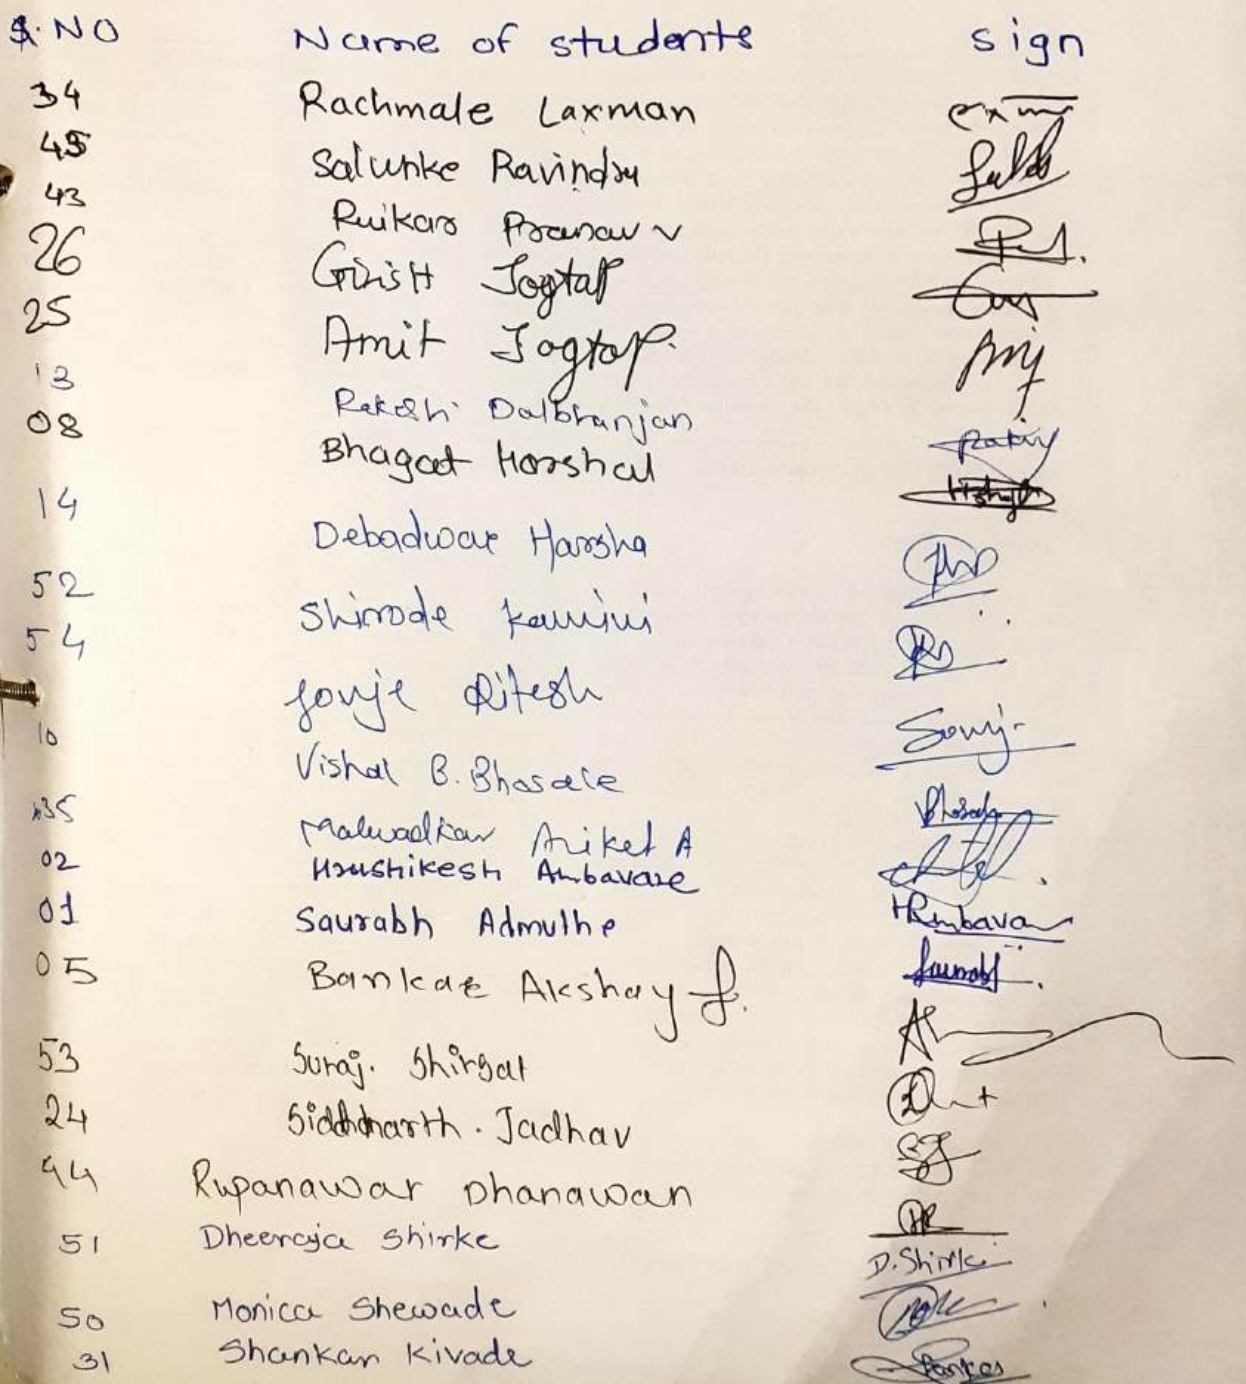 S.NO Name of students sign
34 Rachmale Laxman
45 Salunke Ravindra
43 Ruikar Pranav V
26 Girish Jagtap
25 Amit Jagtap.
13 Rakesh Dalbhanjan
08 Bhagat Harshal
14 Debadwar Harsha
52 Shirode Kamini
54 Sonje Ritesh Sonj
10 Vishal B. Bhosale Bhosale
35 Malwadkar Aniket A
02 Hrushikesh Ambavare HAmbavar
01 Saurabh Admuthe Saurabh
05 Bankar Akshay S.
53 Suraj. Shirsat
24 Siddharth. Jadhav SJ
44 Rupanawar Dhanawan
51 Dheeraja Shirke D. Shirke
50 Monica Shewade
31 Shankar Kivade